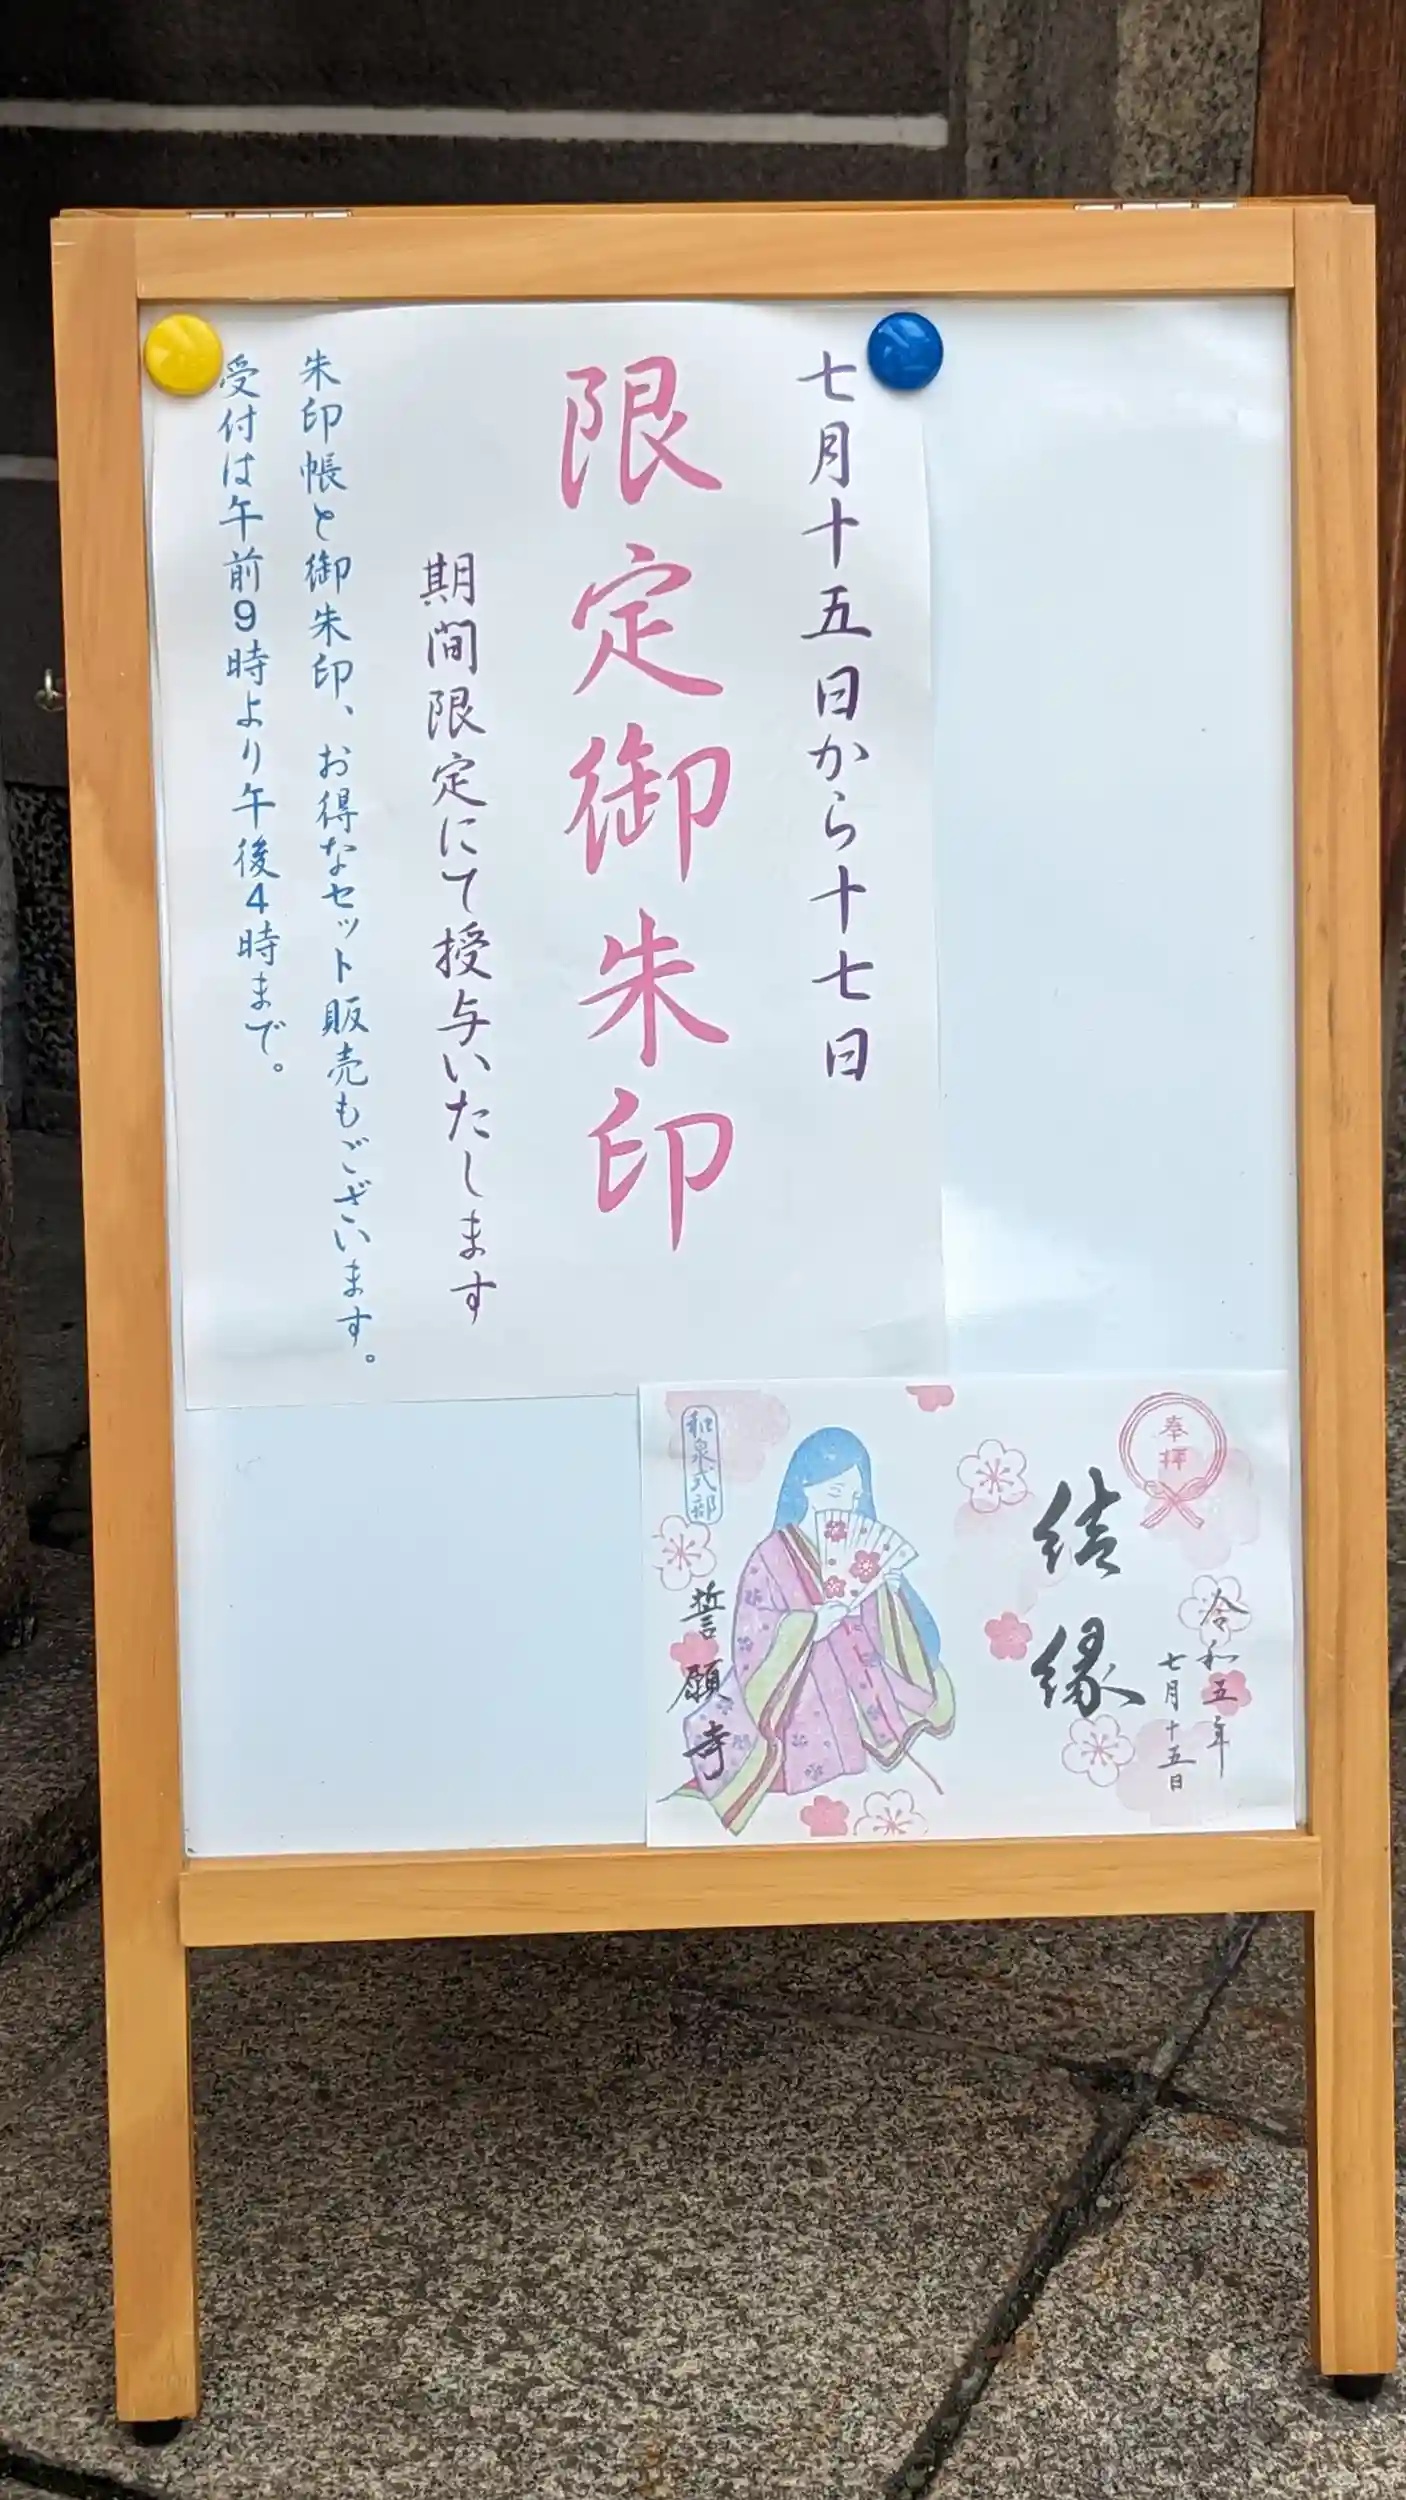 七月十五日から十七日
限定御朱印
期間限定にて授与いたします
朱印帳と御朱印、お得なセット販売もございます。
受付は午前9時より午後4時まで。
奉拝
令和五年
七月十五日
結縁
和泉式部
誓願寺